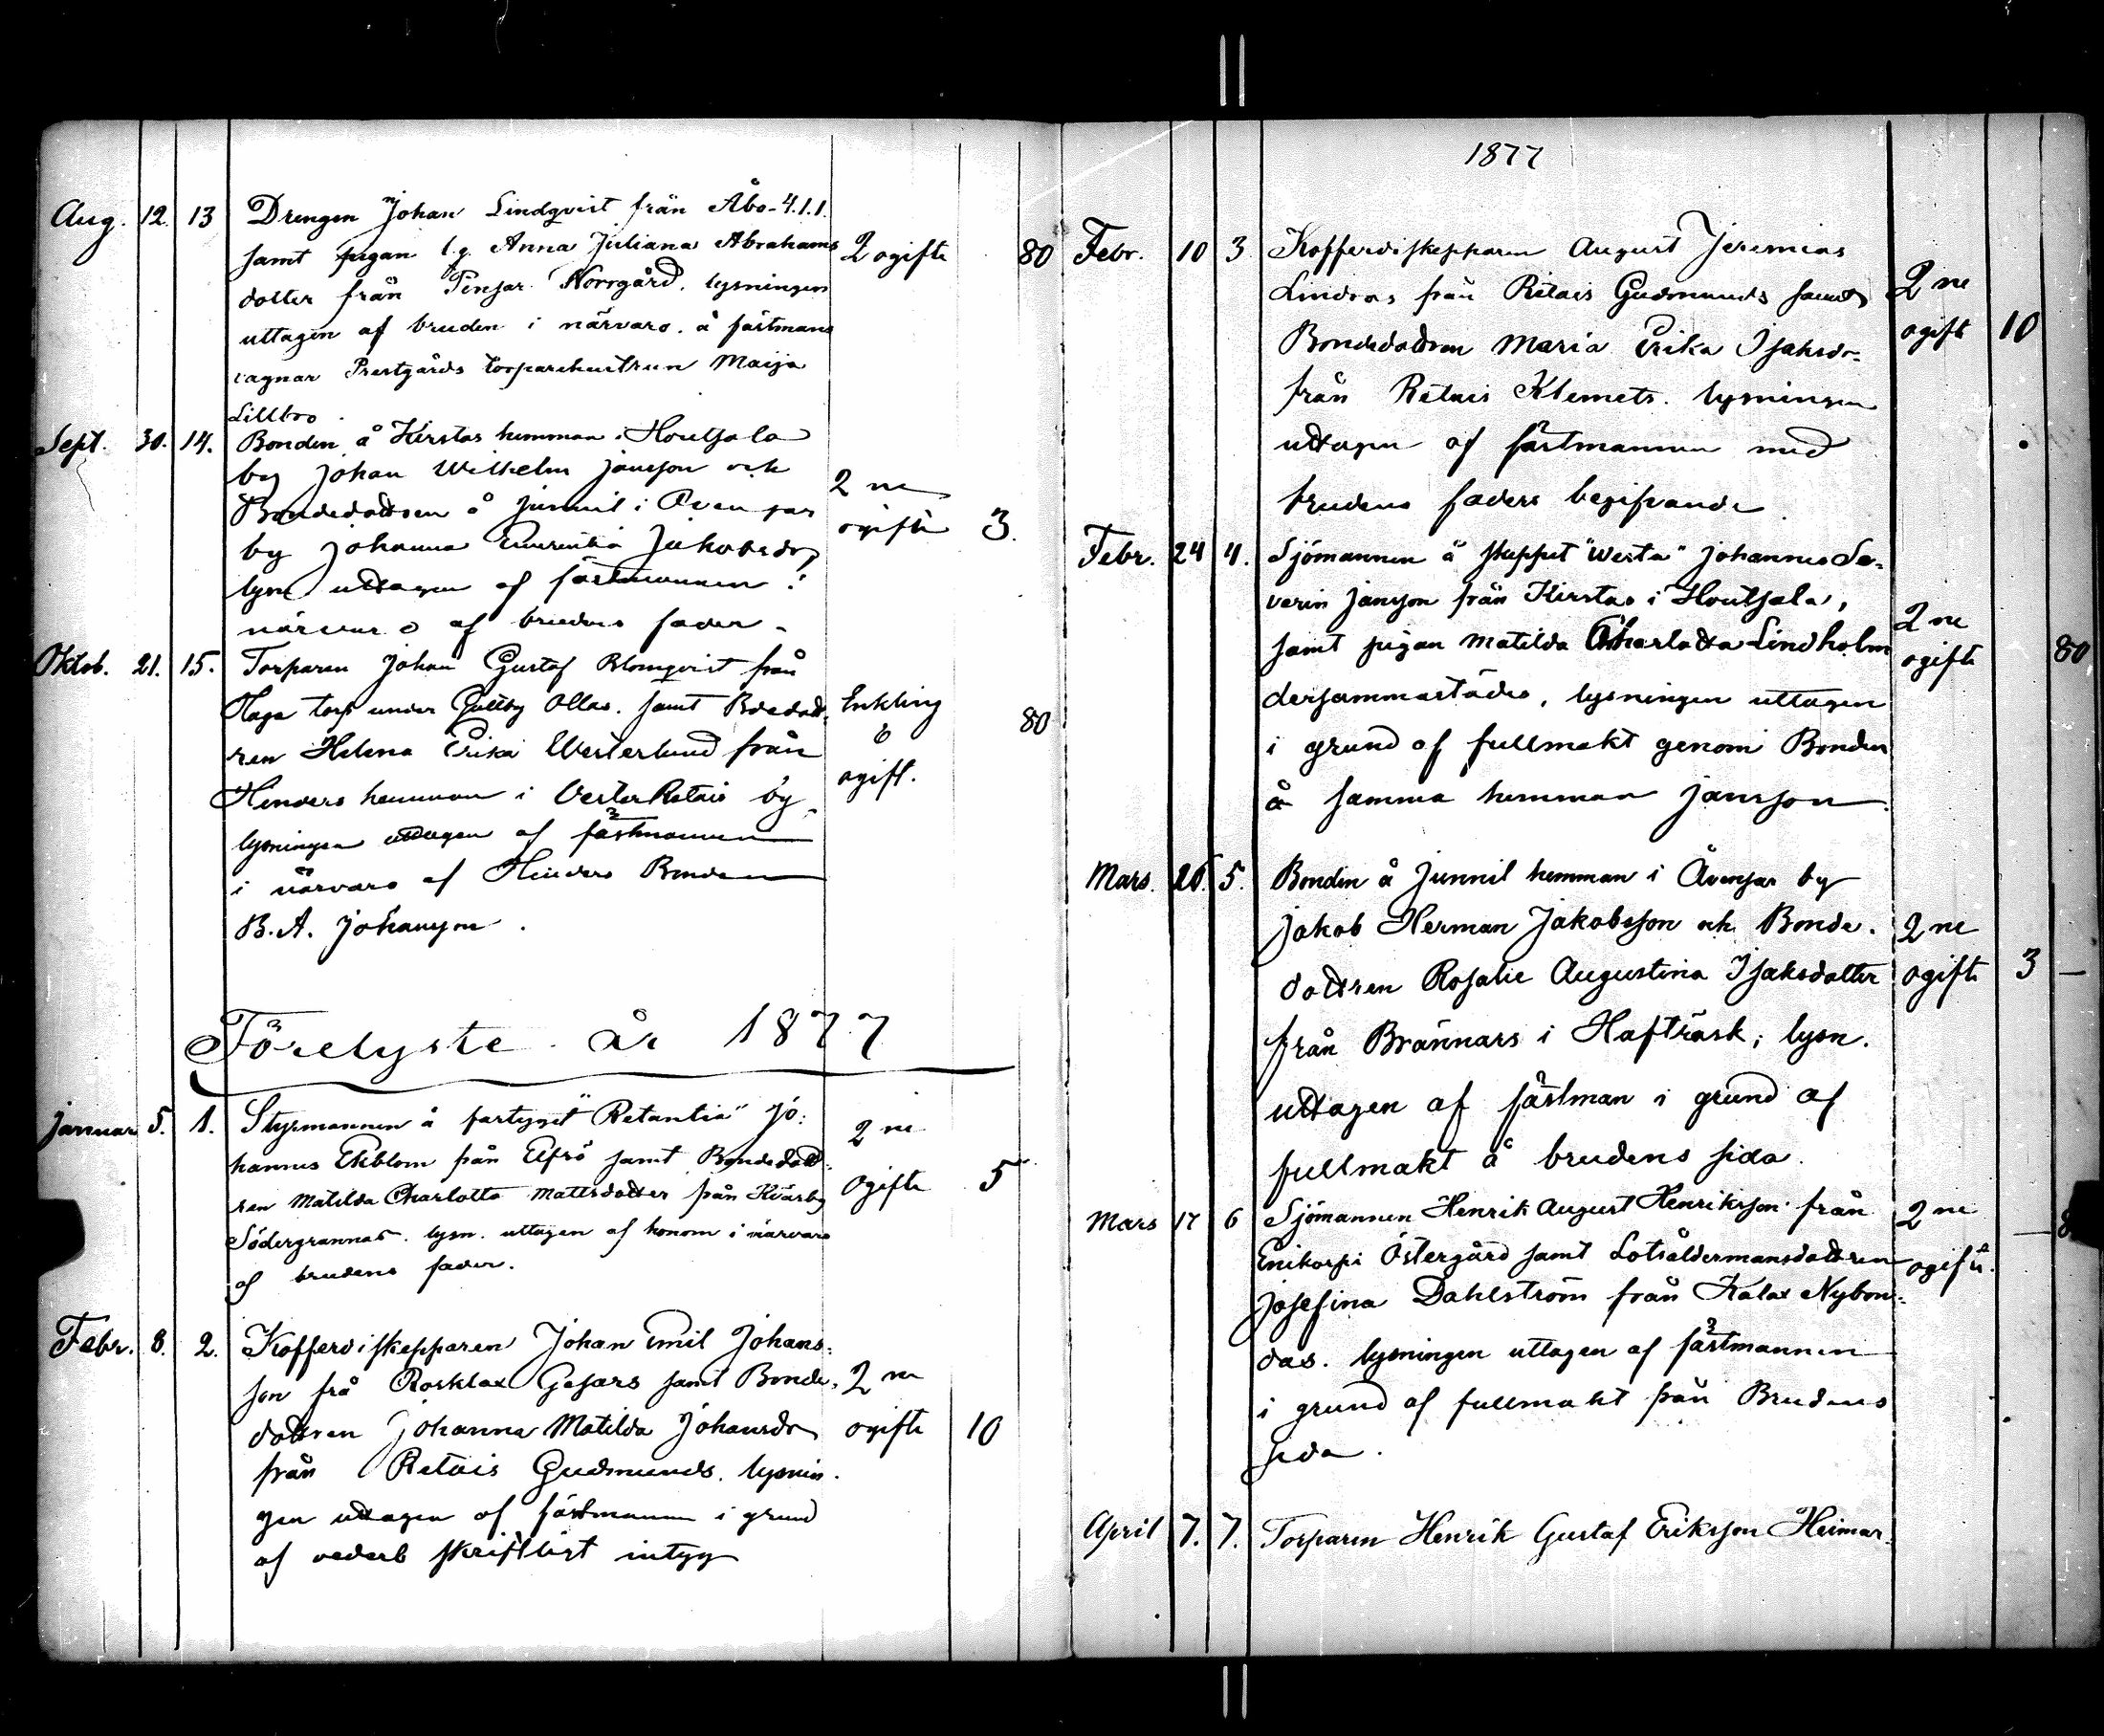 Aug. 12. 13 Drengen Johan Lindqvist från Åbo 4.1.1.
samt pigan l.g. Anna Juliana Abrahams 2 ogifte 80
dotter från Pensar Norrgård, lysningen
uttagen af bruden i närvaro å fästmans
vägnar Prestgårds torparehustrun Maija
Lillbro.
Sept. 30. 14. Bonden å Kirstas hemman i Houtsala
by Johan Wilhelm Jansson och 2 ne
Bondedottren å Junnil i Åvensar ogifte 3.
by Johanna Jakobsdr,
lysn uttagen af fästmannen i
närvaro af brudens fader.
Oktob. 21. 15. Torparen Johan Gustaf Blomqvist från
Haga torp under Gyttby Ollas. samt Bdedott- Enkling 80
ren Helena Erika Westerlund från o
Hinders hemman i Vester Retais by, ogift.
lysningen uttagen af fästmannen
i närvaro af Hinders Bonden
B. A. Johansson.
Förelyste år 1877
Januar 5. 1. Styrmannen å fartyget "Retantia" Jo- 2 ne
hannes Ekblom från Elfsö samt Bondedott-
ren Matilda Charlotta Mattsdotter från Kivarby ogifte 5
Södergrannas. lysn. uttagen af honom i närvaro
af brudens fader.
Febr. 8. 2. Kofferdiskepparen Johan Emil Johans-
son frå Rosklax Gesars samt Bonde- 2 ne
dottren Johanna Matilda Johansdr ogifte 10
från Retais Gudmunds. lysnin-
gen uttagen af fästmannen i grund
af vederb skriftligt intyg
1877
Febr. 10 3. Kofferdiskepparen August Jeremias
Lindros från Retais Gudmunds samt 2 ne
Bondedottren Maria Erika Isaksdr- ogift 10
från Retais Klemets. lysningen
uttagen af fästmannen med
brudens faders begifvande
Febr. 24 4. Sjömannen å skeppet "Westa" Johannes Se-
verin Jansson från Kirstas i Houtsala, 2 ne
samt pigan Matilda Charlotta Lindholm ogifte 80
dersammastädes, lysningen uttagen
i grund af fullmakt genom Bonden
å samma hemman Jansson.
Mars. 26. 5. Bonden å Junnil hemman i Åvensar by
Jakob Herman Jakobsson och Bonde- 2 ne
dottren Rosalie Augustina Isaksdotter ogifte 3 —
från Brännars i Hafträsk; lysn.
uttagen af fästman i grund af
fullmakt å brudens sida.
Mars 17 6 Sjömannen Henrik August Henriksson från 2 ne — 8
Enikorpi Östergård samt Lotsåldermansdottren ogifte.
Josefina Dahlström från Kalax Nybon-
das. lysningen uttagen af fästmannen
i grund af fullmakt från Brudens
sida.
April 7. 7. Torparen Henrik Gustaf Eriksson Heimar-